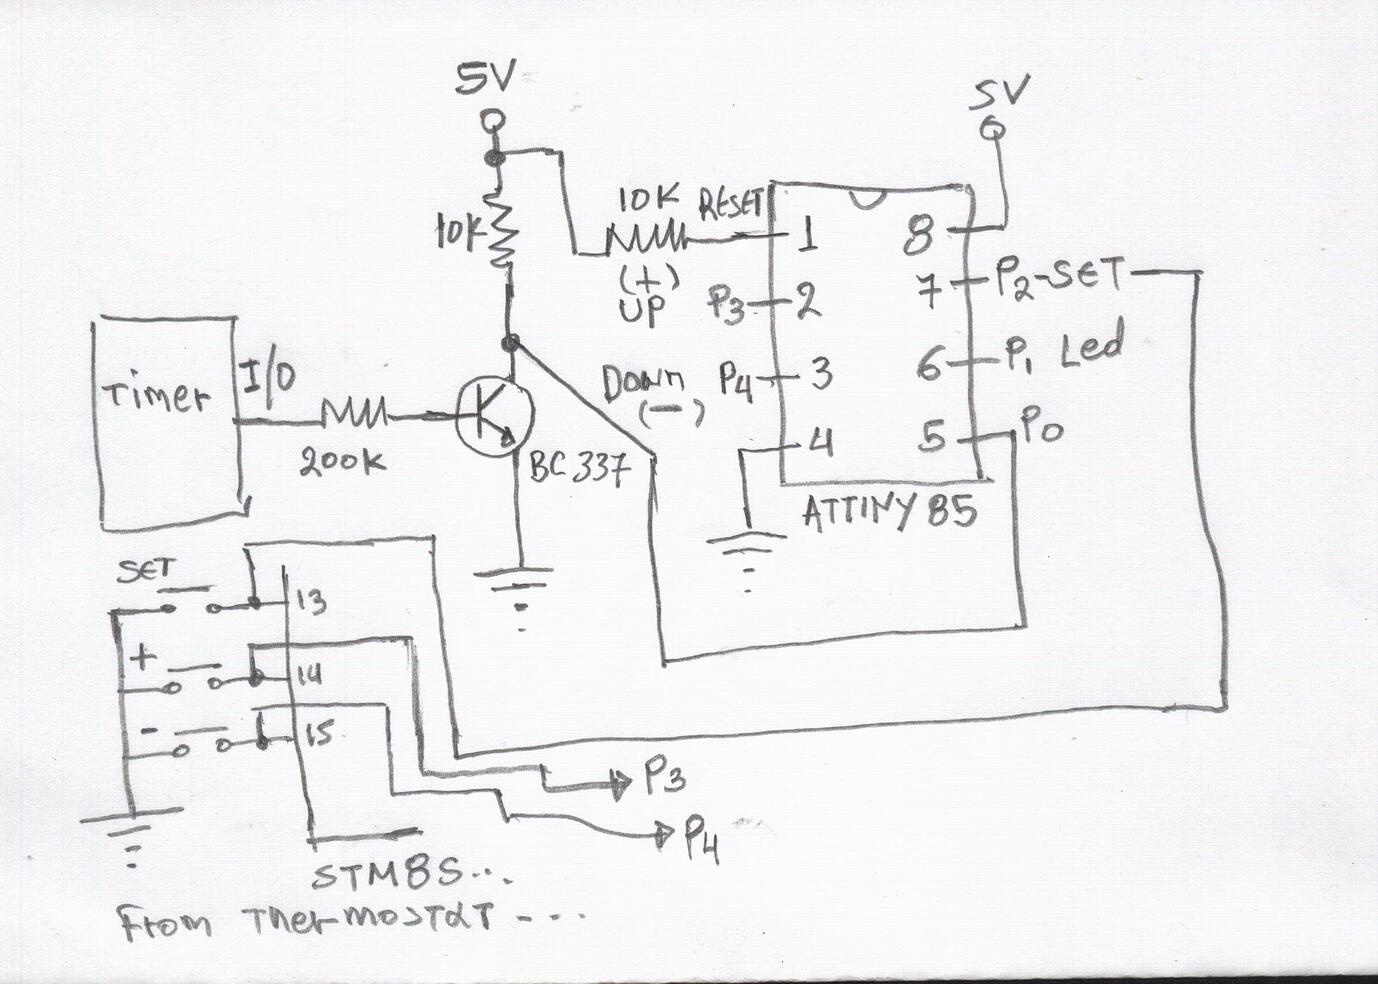 5V
5V
10K
10K RESET
(+)
UP
1
8
P3
2
7
P2-SET
I/O
Timer
Down
(—)
P4
3
6
P1 Led
200K
BC 337
4
5
P0
ATTINY 85
SET
13
+
14
-
15
P3
P4
STM8S...
From Thermostat - ...